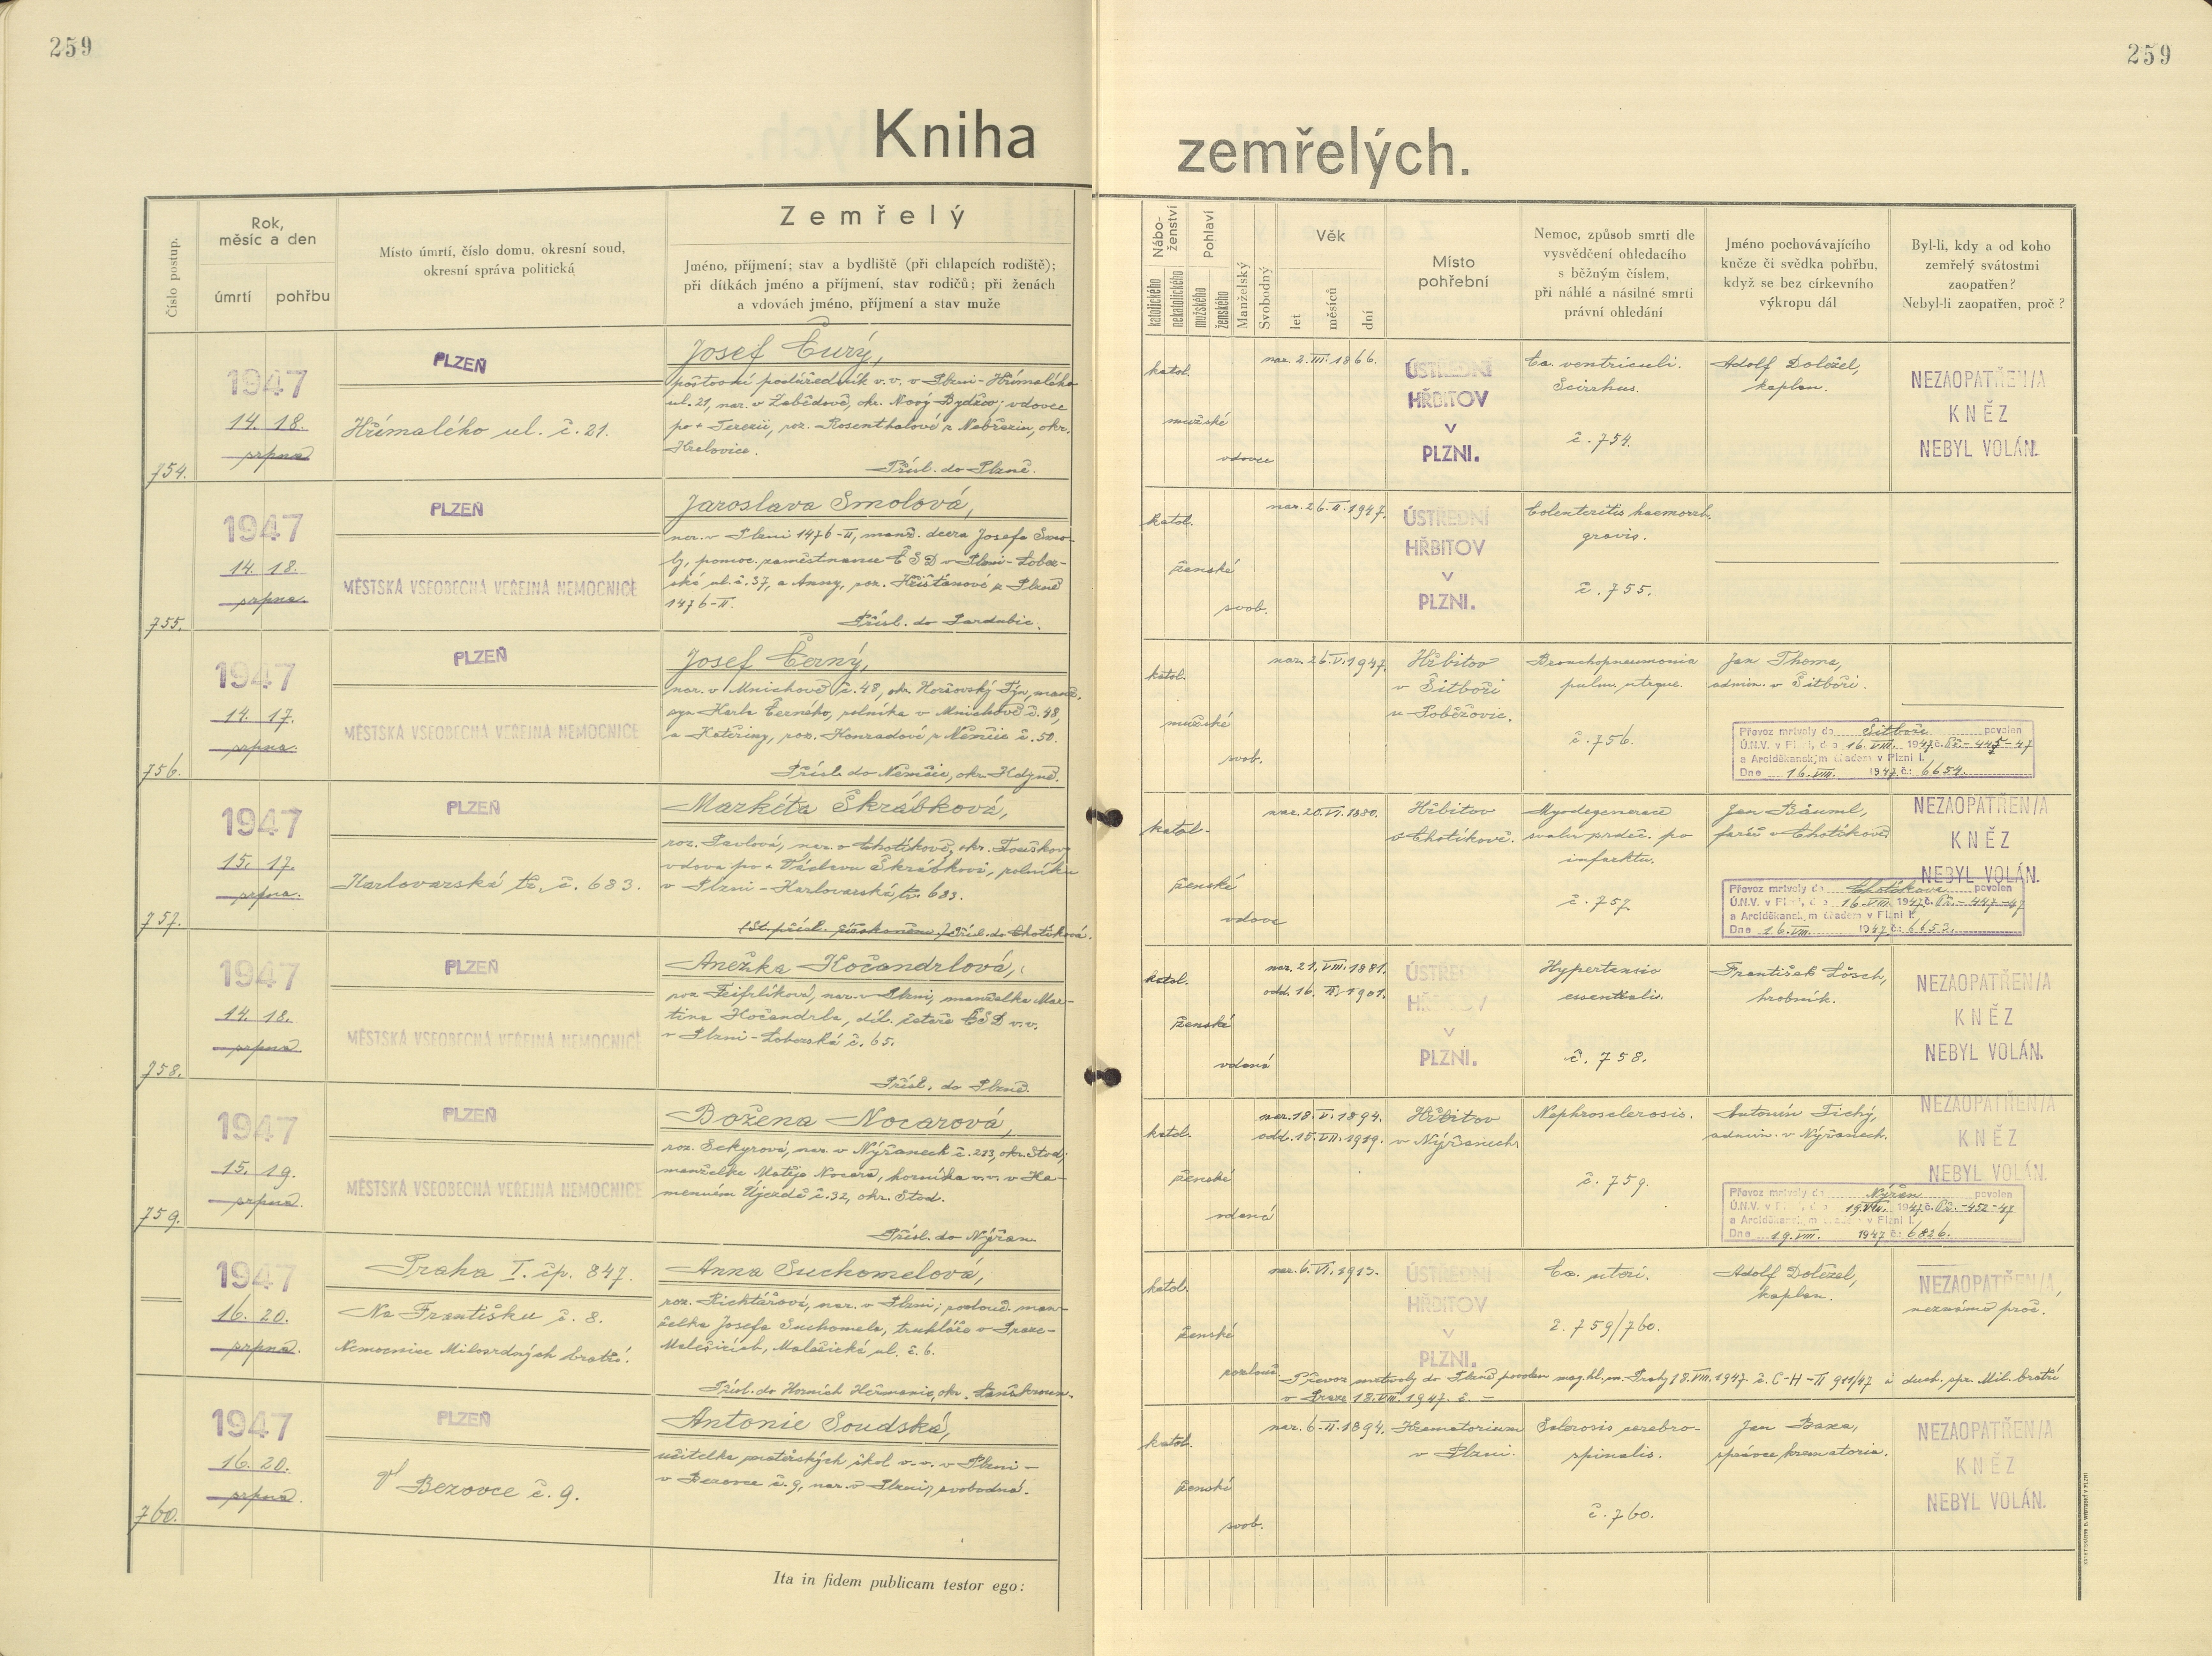 259
259
Kniha
zemřelých.
Číslo postup.
Rok,
měsíc a den
úmrtí
pohřbu
Místo úmrtí, číslo domu, okresní soud,
okresní správa politická
Zemřelý
Jméno, příjmení; stav a bydliště (při chlapcích rodiště);
při dítkách jméno a příjmení, stav rodičů; při ženách
a vdovách jméno, příjmení a stav muže
Nábo-
ženství
katolického
nekatolického
Pohlaví
mužského
ženského
Manželský
Svobodný
Věk
let
měsíců
dní
Místo
pohřební
Nemoc, způsob smrti dle
vysvědčení ohledacího
s běžným číslem,
při náhlé a násilné smrti
právní ohledání
Jméno pochovávajícího
kněze či svědka pohřbu,
když se bez církevního
výkropu dál
Byl-li, kdy a od koho
zemřelý svátostmi
zaopatřen?
Nebyl-li zaopatřen, proč?
754.
1947
14. 18.
srpna
PLZEŇ
Hřímalého ul. č. 21.
Josef Čurý,
poštovní podúředník v. v. v Plzni-Hřímalého
ul. 21, nar. v Zobědově, okr. Nový Bydžov; vdovec
po + Terezii, roz. Rosenthalové z Nebřezin, okr.
Kralovice.
Přísl. do Plzně.
katol.
mužské
vdovec
nar. 2. III. 1866.
ÚSTŘEDNÍ
HŘBITOV
V
PLZNI.
Ca. ventriculi.
Scirrhus.
č. 754.
Adolf Doležel,
kaplan.
NEZAOPATŘEN/A
KNĚZ
NEBYL VOLÁN.
755.
1947
14. 18.
srpna.
PLZEŇ
MĚSTSKÁ VŠEOBECNÁ VEŘEJNÁ NEMOCNICE
Jaroslava Smolová,
nar. v Plzni 1476-II, manž. dcera Josefa Smo-
ly, pomoc. zaměstnance ČSD v Plzni-Lobez-
ská ul. č. 37, a Anny, roz. Křišťanové z Plzně
1476-II.
Přísl. do Pardubic.
katol.
ženské
svob.
nar. 26. II. 1947.
ÚSTŘEDNÍ
HŘBITOV
V
PLZNI.
Colenteritis haemorrh.
gravis.
č. 755.
756.
1947
14. 17.
srpna.
PLZEŇ
MĚSTSKÁ VŠEOBECNÁ VEŘEJNÁ NEMOCNICE
Josef Černý,
nar. v Mnichově č. 48, okr. Horšovský Týn, manž.
syn Karla Černého, rolníka v Mnichově č. 48,
a Kateřiny, roz. Konradové z Němčic č. 50.
Přísl. do Němčic, okr. Kdyně.
katol.
mužské
svob.
nar. 26. V. 1947.
Hřbitov
v Šitboři
u Poběžovic.
Bronchopneumonia
pulm. utrque.
č. 756.
Jan Thoma,
admin. v Šitboři.
Převoz mrtvoly do Šitboře povolen
Ú.N.V. v Plzni, dne 16. VIII. 1947 č. Př.-445-47
a Arciděkanským úřadem v Plzni I.
Dne 16. VIII. 1947 č: 6654.
757.
1947
15. 17.
srpna.
PLZEŇ
Karlovarská tř. č. 683.
Markéta Škrábková,
roz. Pavlová, nar. v Chotíkově, okr. Touškov
vdova po + Václavu Škrábkovi, rolníku
v Plzni-Karlovarská tř. 683.
Přísl. do Chotíkova.
katol.
ženské
vdova
nar. 20. VI. 1880.
Hřbitov
v Chotíkově.
Myodegenerace
svalu srdeč. po
infarktu.
č. 757
Jan Bäuml,
farář v Chotíkově
NEZAOPATŘEN/A
KNĚZ
NEBYL VOLÁN.
Převoz mrtvoly do Chotíkova povolen
Ú.N.V. v Plzni, dne 16. VIII. 1947 č. Př.-447-47
a Arciděkanským úřadem v Plzni I.
Dne 16. VIII. 1947 č: 6652.
758.
1947
14. 18.
srpna.
PLZEŇ
MĚSTSKÁ VŠEOBECNÁ VEŘEJNÁ NEMOCNICE
Anežka Kočandrlová,
roz. Feifrlíková, nar. v Plzni, manželka Mar-
tina Kočandrla, díl. četaře ČSD v. v.
v Plzni-Lobezská č. 65.
Přísl. do Plzně.
katol.
ženské
vdaná
nar. 21. VIII. 1881.
odd. 16. II. 1901.
ÚSTŘEDNÍ
HŘBITOV
V
PLZNI.
Hypertensio
essentialis.
č. 758.
František Lösch,
hrobník.
NEZAOPATŘEN/A
KNĚZ
NEBYL VOLÁN.
759.
1947
15. 19.
srpna.
PLZEŇ
MĚSTSKÁ VŠEOBECNÁ VEŘEJNÁ NEMOCNICE
Božena Nocarová,
roz. Sekyrová, nar. v Nýřanech č. 213, okr. Stod;
manželka Matěje Nocara, horníka v. v. v Ka-
menném Újezdě č. 32, okr. Stod.
Přísl. do Nýřan.
katol.
ženské
vdaná
nar. 18. V. 1894.
odd. 15. VII. 1919.
Hřbitov
v Nýřanech
Nephrosclerosis.
č. 759.
Antonín Tichý,
admin. v Nýřanech.
NEZAOPATŘEN/A
KNĚZ
NEBYL VOLÁN.
Převoz mrtvoly do Nýřan povolen
Ú.N.V. v Plzni, dne 19. VIII. 1947 č. Př.-452-47
a Arciděkanským úřadem v Plzni I.
Dne 19. VIII. 1947 č: 6826.
1947
16. 20.
srpna.
Praha I. čp. 847.
Na Františku č. 8.
Nemocnice Milosrdných bratří.
Anna Suchomelová,
roz. Richtářová, nar. v Plzni; rozlouč. man-
želka Josefa Suchomela, truhláře v Praze-
Malešicích, Malešická ul. č. 6.
Přísl. do Horních Heřmanic, okr. Lanškroun.
katol.
ženské
rozlouč.
nar. 6. VI. 1913.
ÚSTŘEDNÍ
HŘBITOV
V
PLZNI.
Ca. uteri.
č. 759/760.
Adolf Doležel,
kaplan.
NEZAOPATŘEN/A,
neznámo proč.
Převoz mrtvoly do Plzně povolen mag. hl. m. Prahy 18. VIII. 1947. č. C-H-II 911/47 a duch. spr. Mil. bratří
v Praze 18. VIII. 1947. č. -
760.
1947
16. 20.
srpna.
PLZEŇ
Bezovce č. 9.
Antonie Soudská,
učitelka mateřských škol v. v. v Plzni-
v Bezovce č. 9, nar. v Plzni, svobodná.
katol.
ženské
svob.
nar. 6-II-1894.
Krematorium
v Plzni.
Sclerosis cerebro-
spinalis.
č. 760.
Jan Baxa,
správce krematoria.
NEZAOPATŘEN/A
KNĚZ
NEBYL VOLÁN.
Ita in fidem publicam testor ego: